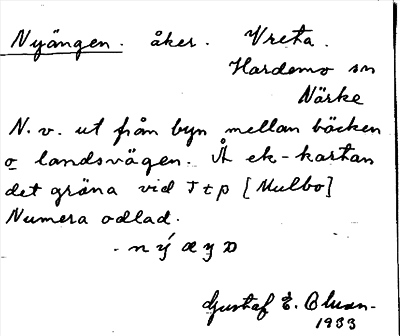 Nyängen. åker. Vreta.
Hardemo sn
Närke
N. v. ut från byn mellan bäcken
o landsvägen. Å ek-kartan
det gröna vid T t p [Mulbo]
Numera odlad.
Gustaf E.
1933